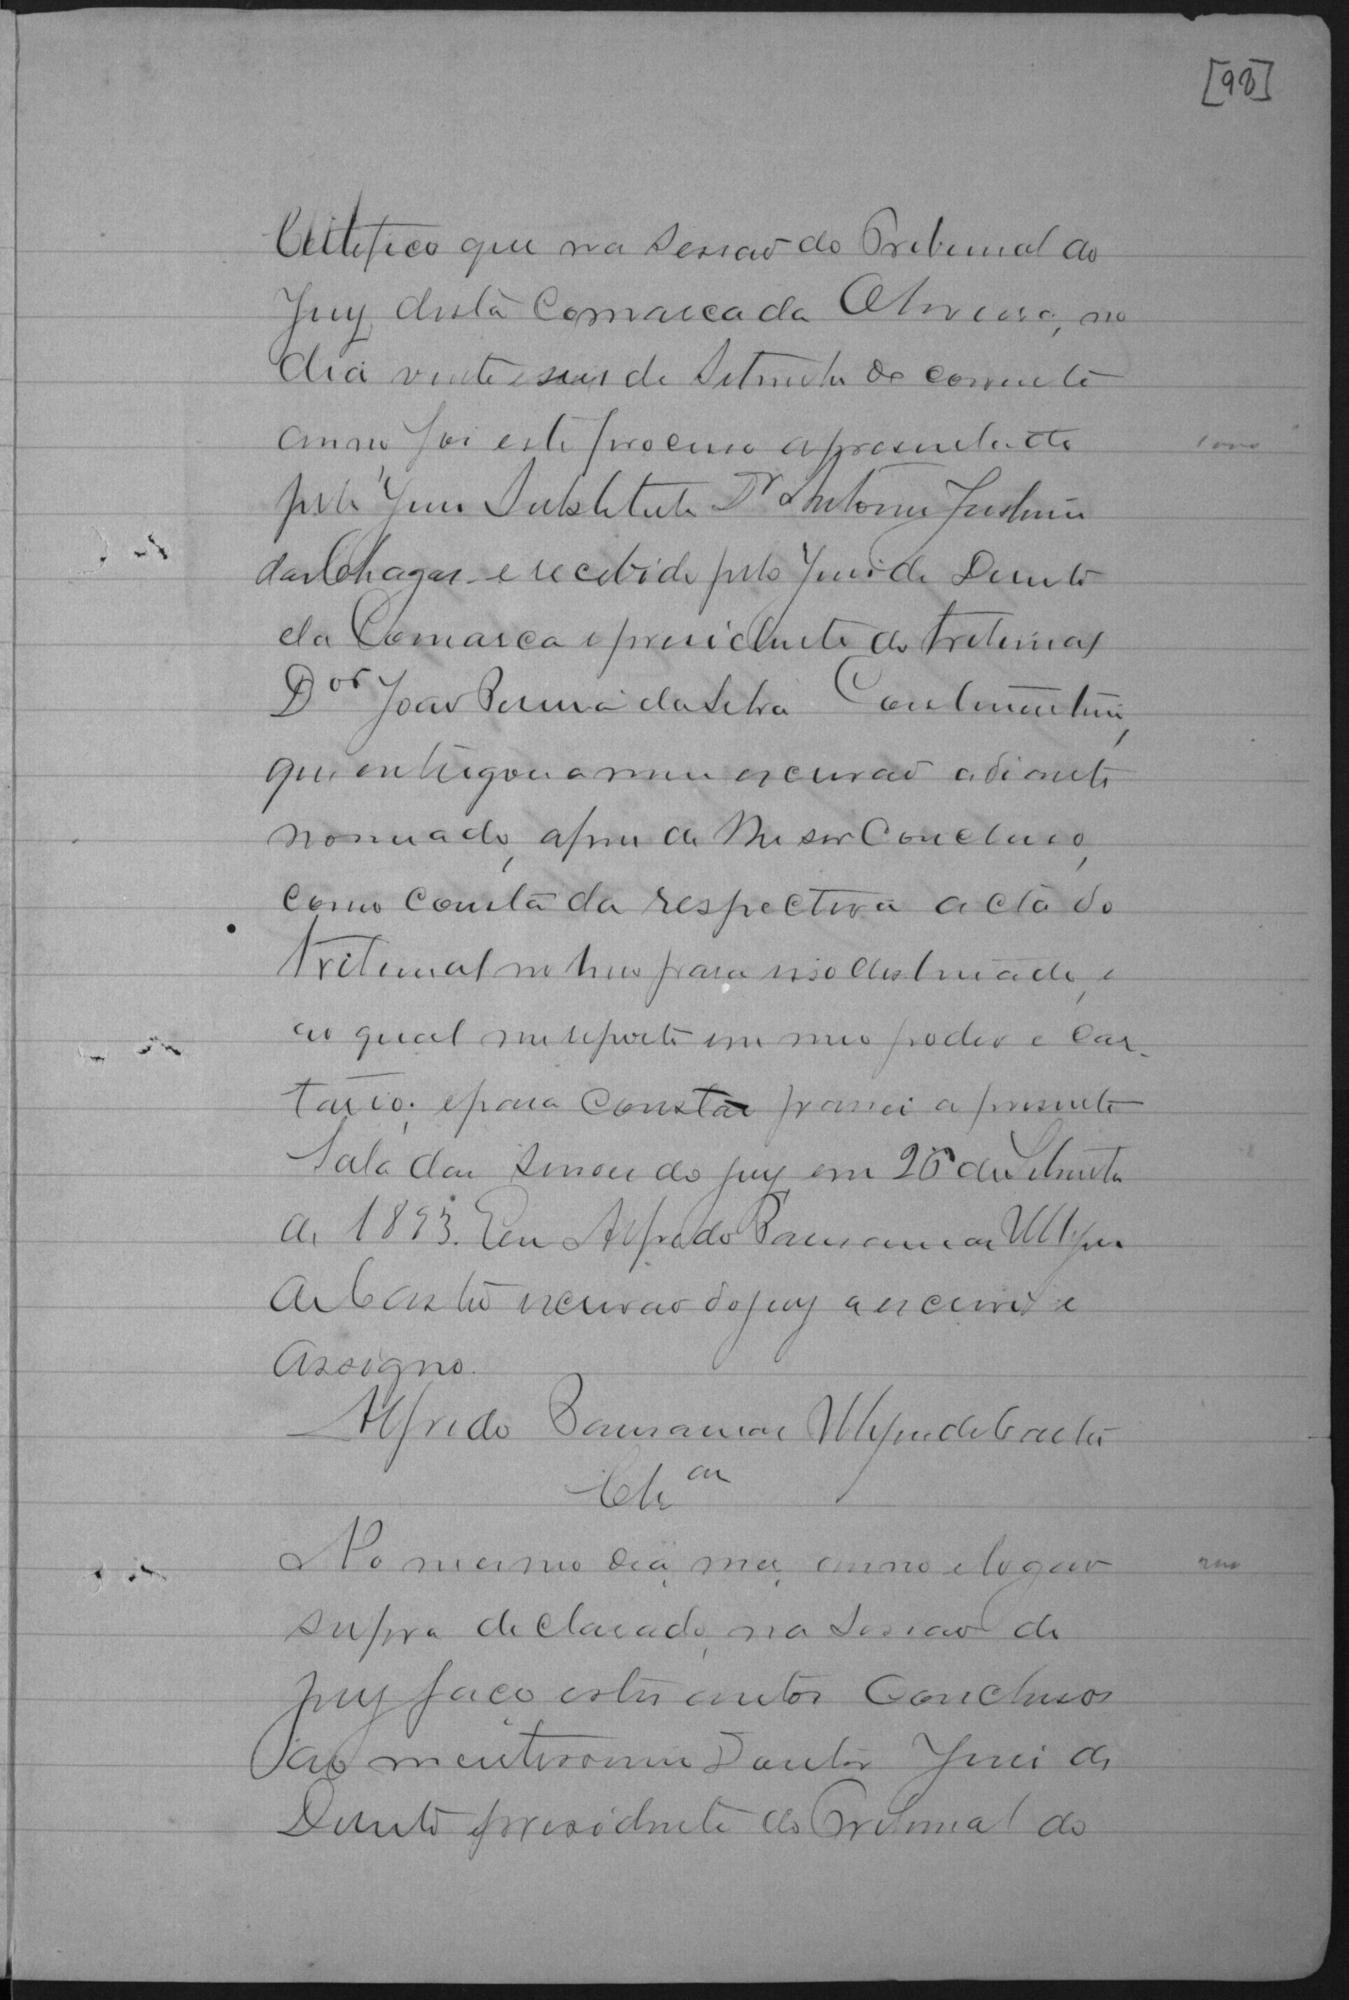 [98]
Certefico que na sessaõ do Tribunal do
Jury desta Comarca da Oliveira, no
dia vinte e seis de Setembro do corrente
anno foi este processo apresentado
pelo Juiz Substituto Dr Antonio Justino
das Chagas e recebido pelo Juiz de Direito
da Comarca e presidente do tribunal
Dor João Pereira da Silva Continentino,
que entregou a mim escrivaõ adiante
nomeado, afim de lhe ser Concluso,
como consta da respectiva acta do
tribunal no livro para isso destinado, e
ao qual me reporto em meu poder e car-
torio; e para constar passei a presente
Sala das sessoes do jury em 26 de Setembro
de 1893. Eu Alfredo Pausanias
de Castro escrivaõ do jury a escrevi e
assigno.
Alfredo Pausanias de Castro
Clsam
No mesmo dia, mez, anno e logar
supra declarado, na sessaõ do
jury faço estes autos Conclusos
ao meritissimo Doutor Juiz de
Direito presidente do Tribunal do